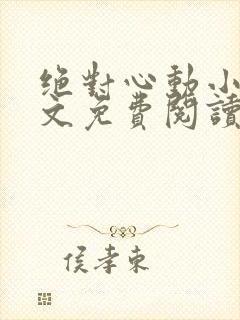 絕對心動小
文免費閱讀
侯孝東